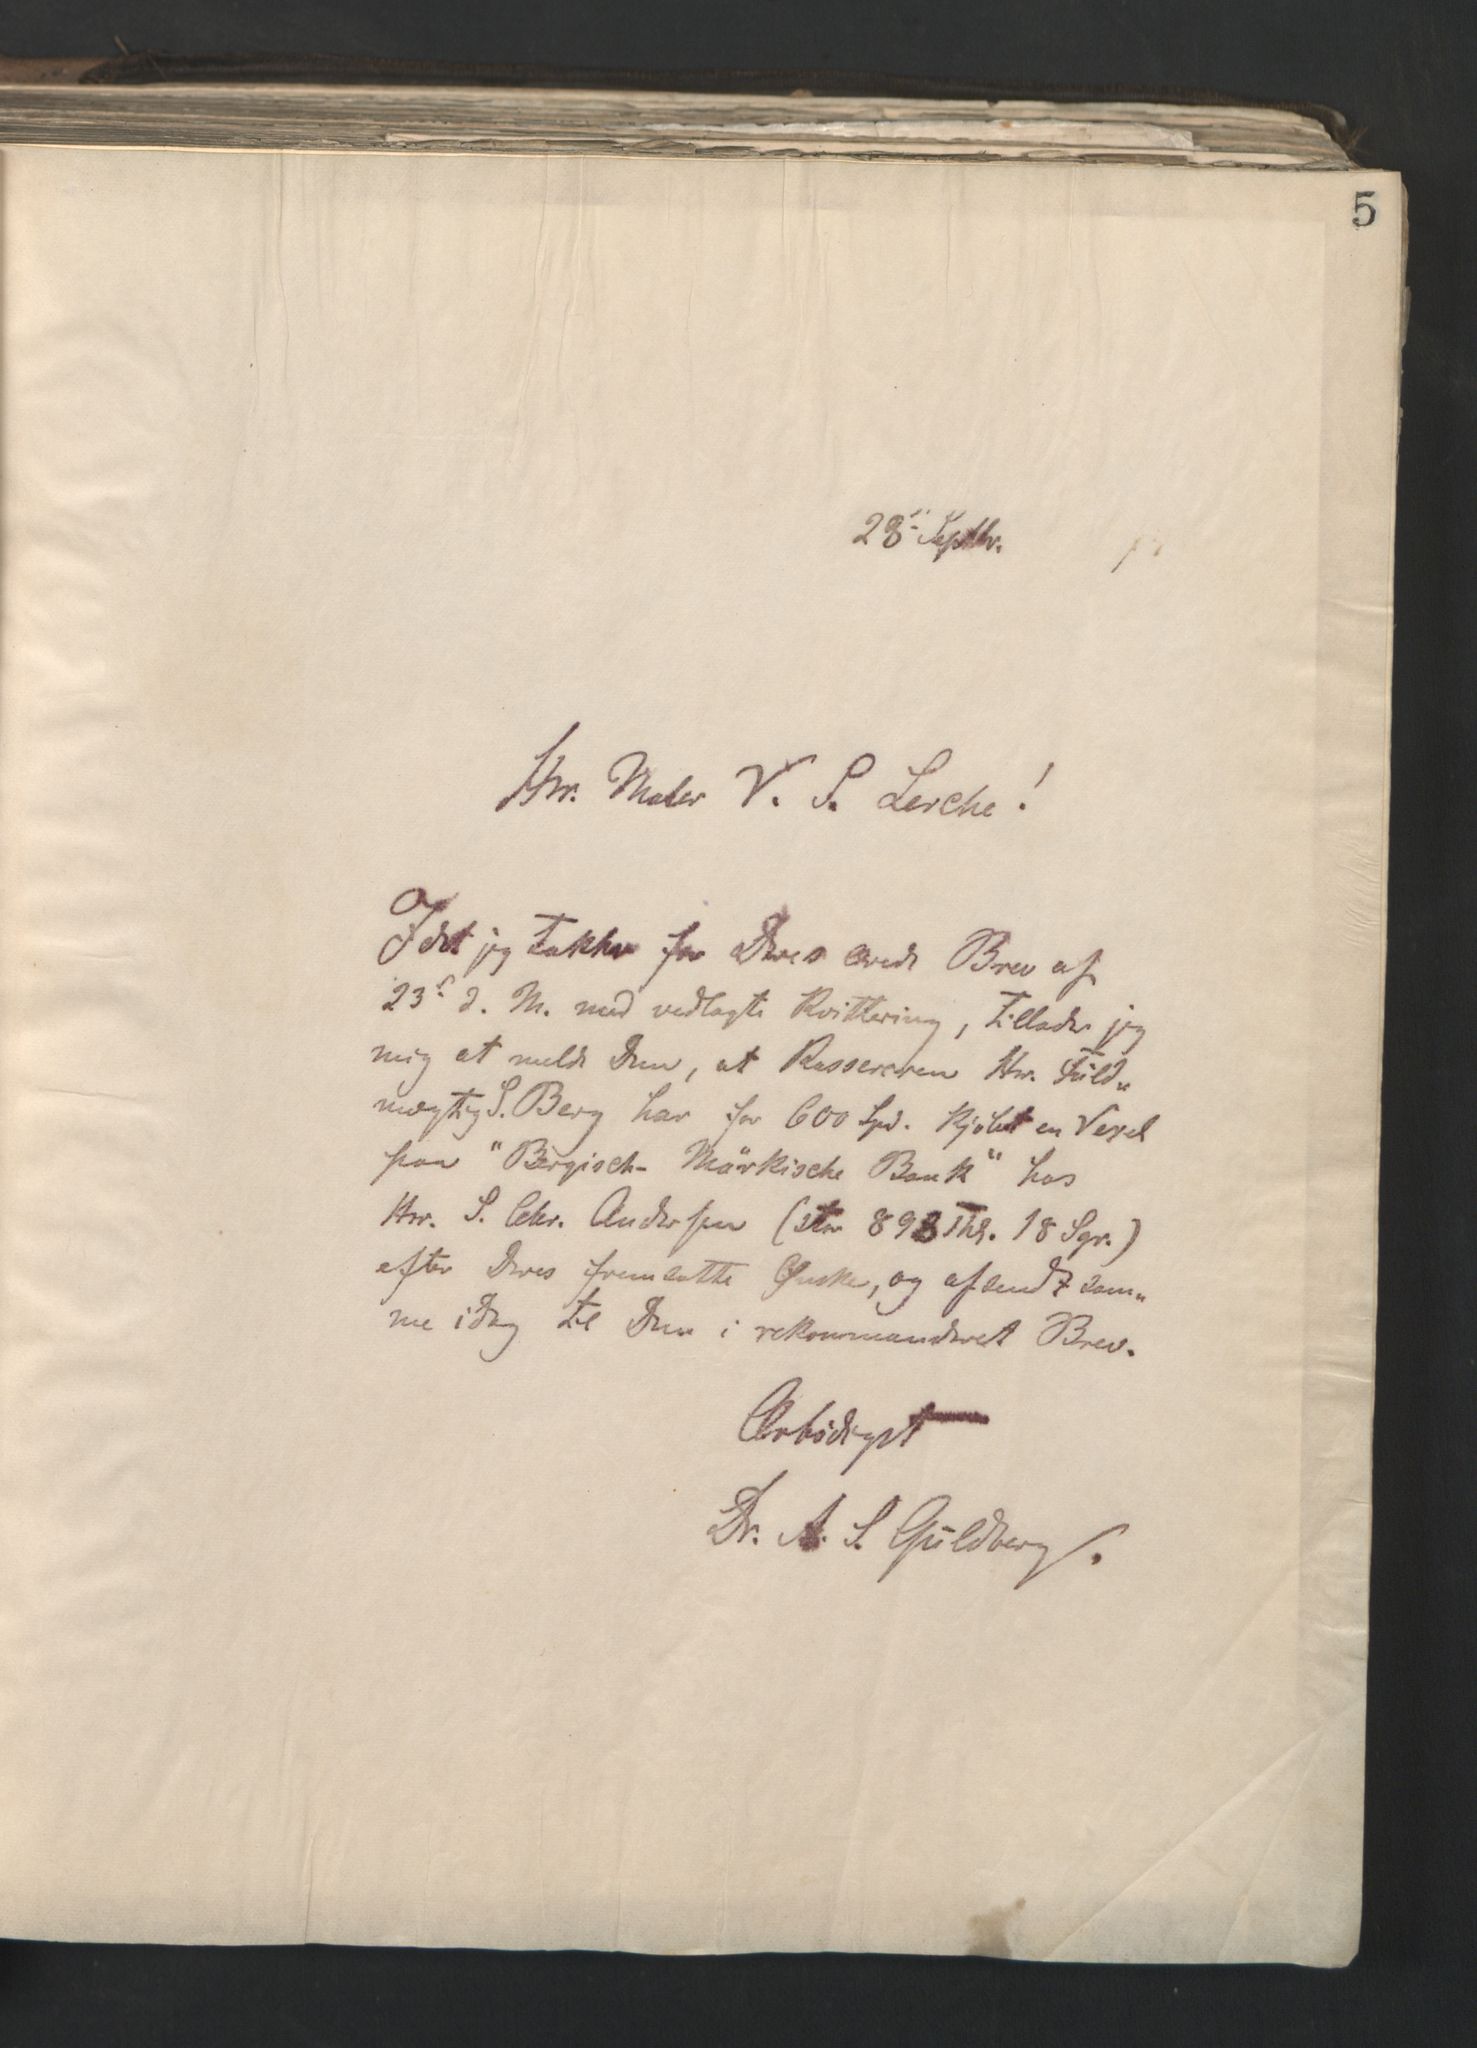 5
28 Septbr.
Hr. Maler V. S. Lerche!
Idet jeg takker for Deres ærede Brev af
23 d. M. med vedlagte Kvittering, tillader jeg
mig at melde Dem, at Kassereren Hr. Fuld„
mægtig S. Berg har for 600 Spd. kjøbt en Vexel
paa "Bergisch- Märkische Bank" hos
Hr. S. Chr. Andersen (stor 898 Thl. 18 Sgr.)
efter Deres fremsatte Ønske, og afsendt sam„
me idag til Dem i rekommanderet Brev.
Ærbødigst
Dr. A. S. Guldberg.